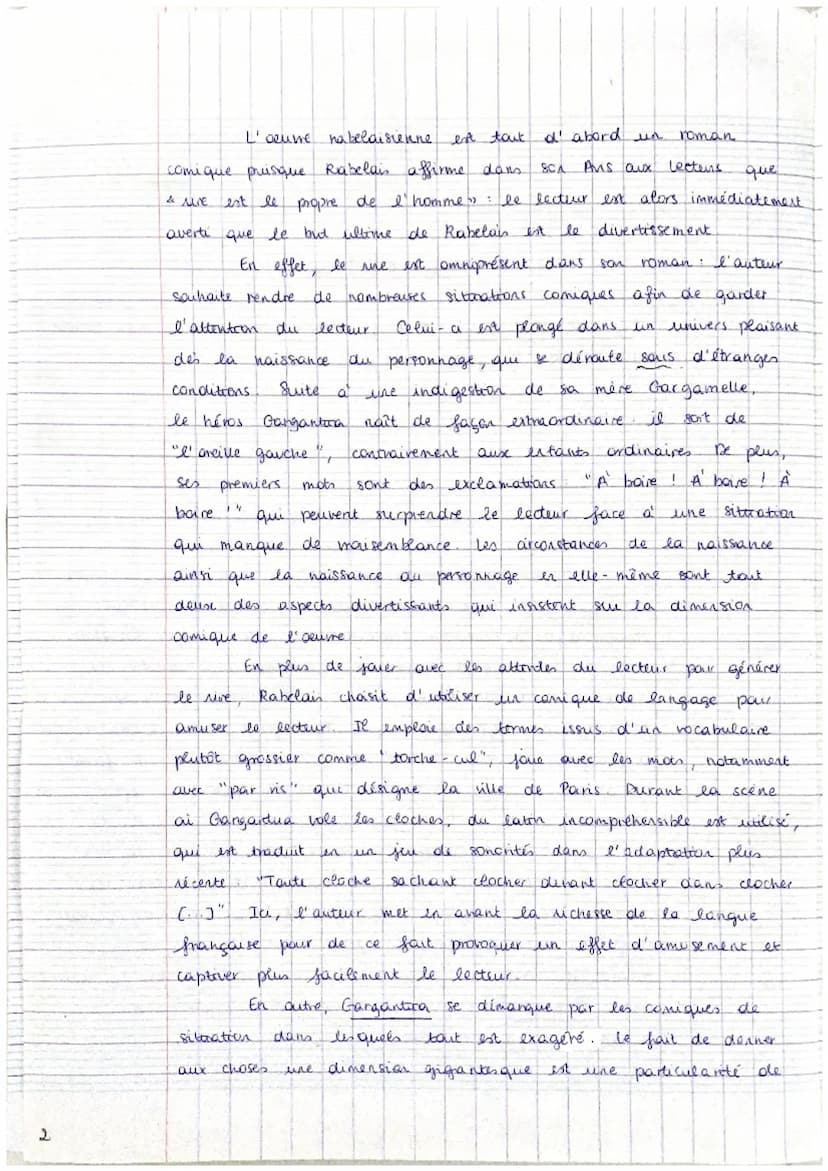 L'oeuvre rabelaisienne est tout d'abord un roman
comique puisque Rabelais affirme dans son Avis aux lecteurs que
« rire est le propre de l'homme » : le lecteur est alors immédiatement
averti que le but ultime de Rabelais est le divertissement.
En effet, le rire est omniprésent dans son roman : l'auteur
souhaite rendre de nombreuses situations comiques afin de garder
l'attention du lecteur. Celui-ci est plongé dans un univers plaisant
dès la naissance du personnage, qui se déroule sous d'étranges
conditions. Suite à une indigestion de sa mère Gargamelle,
le héros Gargantua naît de façon extraordinaire : il sort de
"l'oreille gauche", contrairement aux enfants ordinaires. De plus,
ses premiers mots sont des exclamations : "À boire ! À boire ! À
boire !" qui peuvent surprendre le lecteur face à une situation
qui manque de vraisemblance. Les circonstances de la naissance
ainsi que la naissance du personnage en elle-même sont tout
deux des aspects divertissants qui insistent sur la dimension
comique de l'oeuvre.
En plus de jouer avec les attentes du lecteur pour générer
le rire, Rabelais choisit d'utiliser un comique de langage pour
amuser le lecteur. Il emploie des termes issus d'un vocabulaire
plutôt grossier comme "torche-cul", joue avec les mots, notamment
avec "par ris" qui désigne la ville de Paris. Durant la scène
où Gargantua vole les cloches, du latin incompréhensible est utilisé,
qui est traduit en un jeu de sonorités dans l'adaptation plus
récente : "Toute cloche sachant clocher devant clocher dans clocher
(...)" Ici, l'auteur met en avant la richesse de la langue
française pour de ce fait provoquer un effet d'amusement et
captiver plus facilement le lecteur.
En outre, Gargantua se démarque par les comiques de
situation dans lesquels tout est exagéré. Le fait de donner
aux choses une dimension gigantesque est une particularité de
2